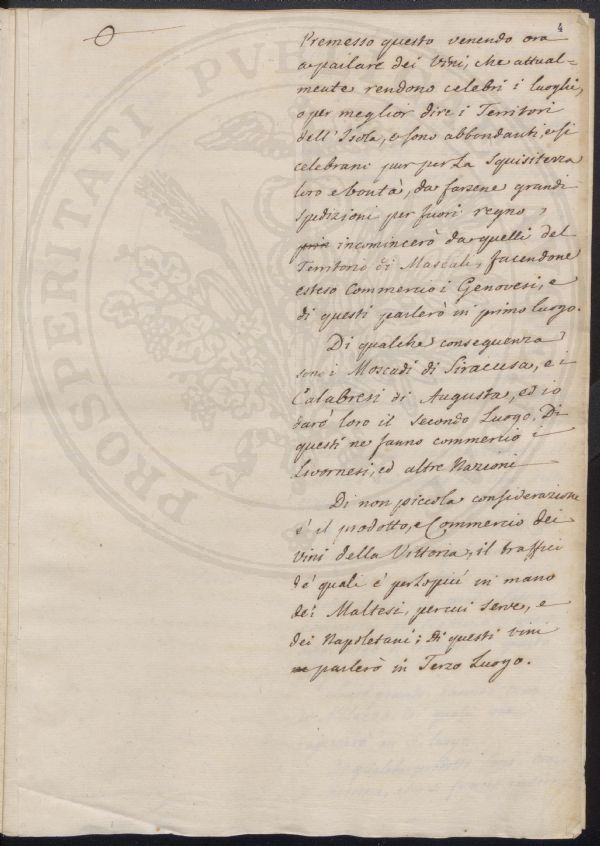 4
Premesso questo venendo ora
a parlare dei Vini, che attual=
mente rendono celebri i luoghi,
o per meglior dire i Territorj
dell'Isola, e sono abbondanti, e si
celebrano pur per la Squisitezza
loro e bontà, da farsene grandi
Spedizioni per fuori regno,
incomincerò da quelli del
Territorio di Mascali, facendone
esteso Commercio i Genovesi, e
di questi parlerò in primo luogo.
Di qualche conseguenza
sono i Moscadi di Siracusa, e i
Calabresi di Augusta, ed io
darò loro il secondo Luogo. Di
questi ne fanno commercio i
Livornesi, ed altre Nazioni
Di non piccola considerazione
è il prodotto, e Commercio dei
Vini della Vittoria, il traffico
de' quali è per lo più in mano
dei Maltesi, per cui Serve, e
dei Napoletani; di questi vini
parlerò in Terzo Luogo.
PROSPERITATI PUBLICAE